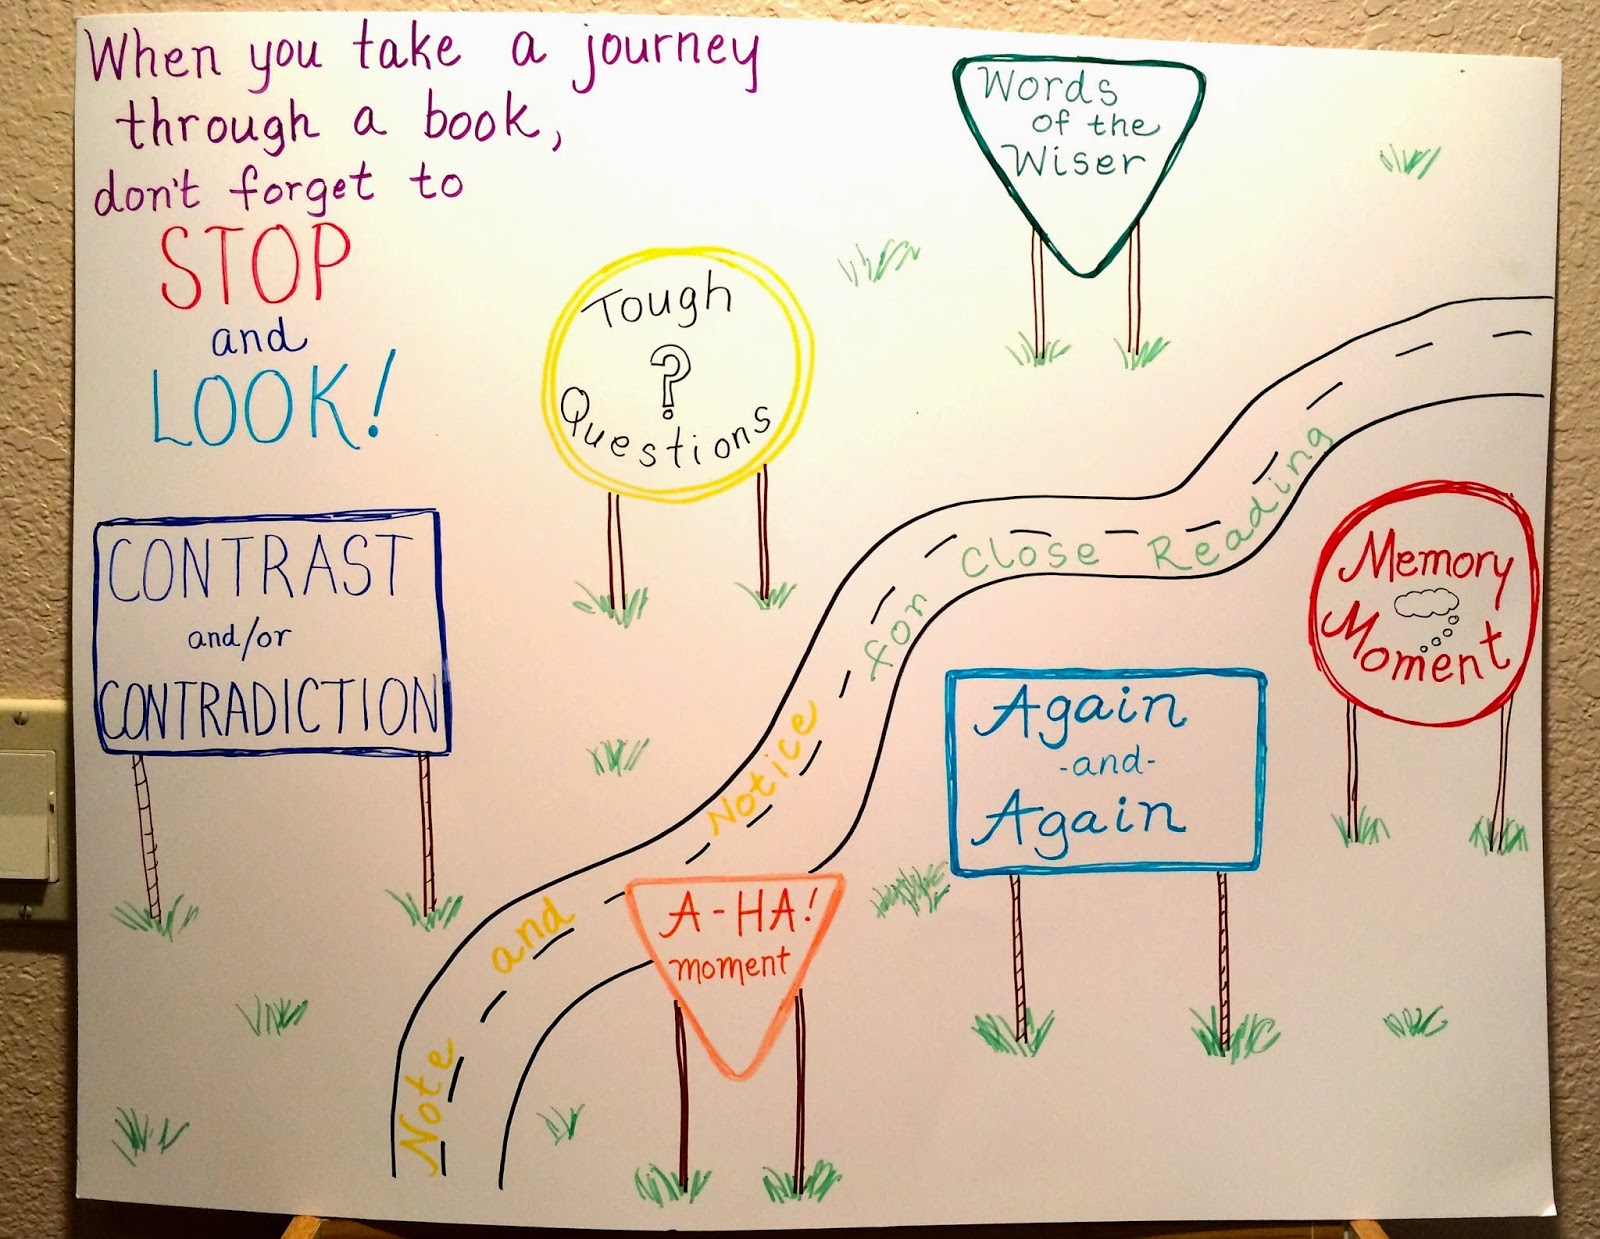 When you take a journey
through a book,
don't forget to
STOP
and
LOOK!
Words
of the
Wiser
Tough
?
Questions
CONTRAST
and/or
CONTRADICTION
Memory
Moment
Again
-and-
Again
A-HA!
moment
Note and Notice for Close Reading